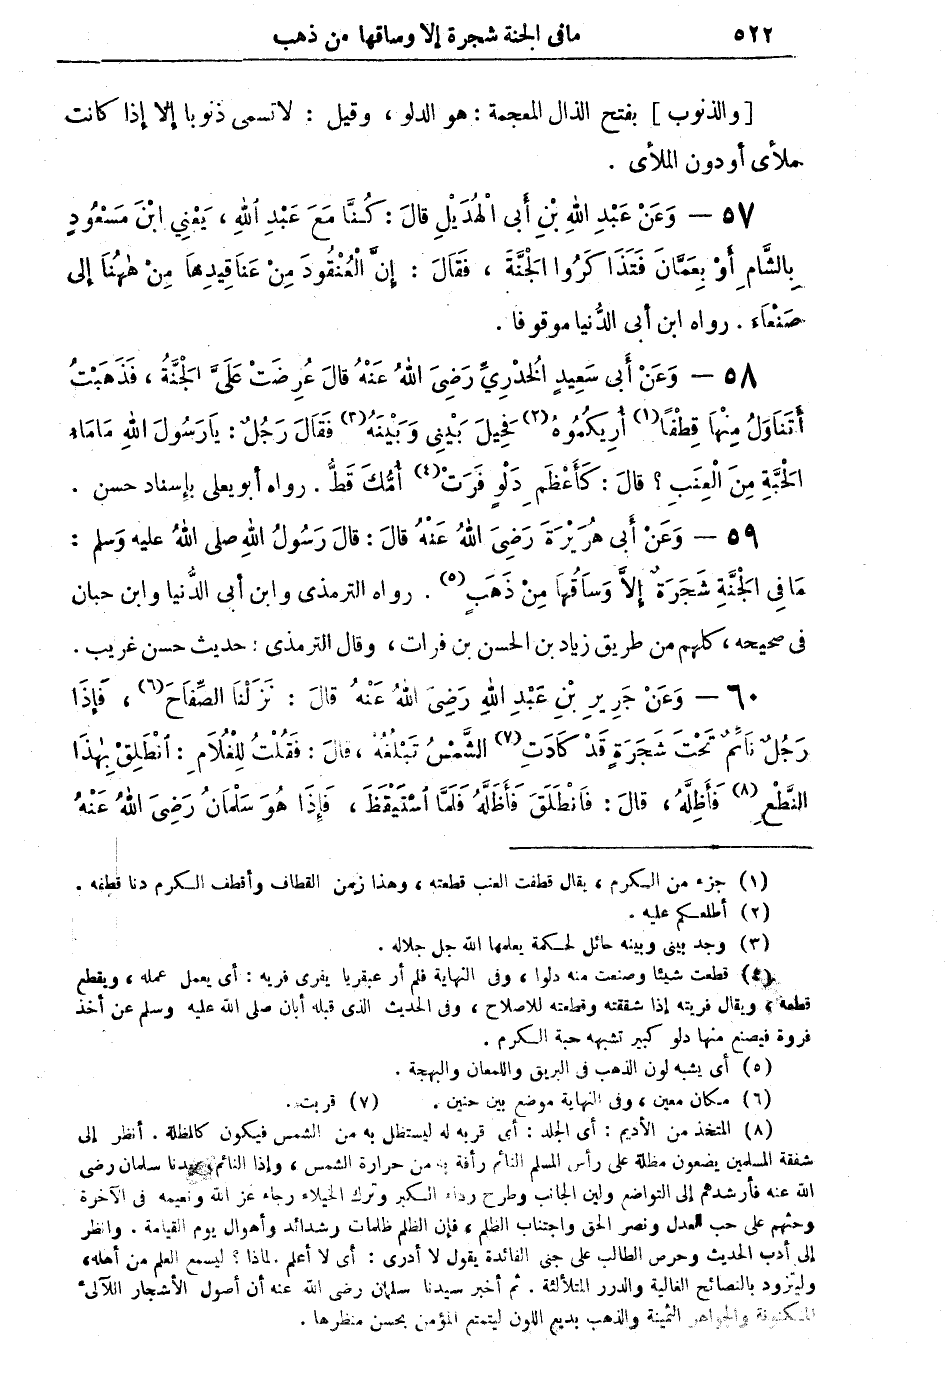 ٥٢٢ مافى الجنة شجرة إلا وساقها من ذهب
[ والذنوب ] بفتح الذال المعجمة : هو الدلو ، وقيل : لاتسمى ذنوبا إلا إذا كانت
ملأى أودون الملأى .
٥٧ – وَعَنْ عَبْدِ اللهِ بْنِ أَبى الْهُذَيْلِ قالَ : كُنَّا مَعَ عَبْدِ اللهِ ، يَعْنِي ابْنَ مَسْعُودٍ
بِالشَّامِ أَوْ بِعَمَّانَ فَتَذَاكَرُوا الْجَنَّةَ ، فَقَالَ : إِنَّ الْعُنْقُودَ مِنْ عَنَاقِيدِهَا مِنْ هٰهُنَا إِلى
صَنْعَاءَ . رواه ابن أبى الدُّنيا موقوفا .
٥٨ – وَعَنْ أَبى سَعِيدٍ الْخُدْرِيِّ رَضِيَ اللهُ عَنْهُ قالَ عُرِضَتْ عَلَىَّ الْجَنَّةُ ، فَذَهَبْتُ
أَتَنَاوَلُ مِنْهَا قِطْفًا(١) أُرِيكُمُوهُ(٢) فَحِيلَ بَيْنِي وَبَيْنَهُ(٣) فَقَالَ رَجُلٌ : يَارَسُولَ اللهِ مَامَاءُ
الْحَبَّةِ مِنَ الْعِنَبِ ؟ قالَ : كَأَعْظَمِ دَلْوٍ فَرَتْ(٤) أُمُّكَ قَطُّ . رواه أبويعلى بإسناد حسن .
٥٩ – وَعَنْ أَبى هُرَيْرَةَ رَضِيَ اللهُ عَنْهُ قالَ : قالَ رَسُولُ اللهِ صلى اللهُ عليه وَسلم :
مَا فِى الْجَنَّةِ شَجَرَةٌ إِلاَّ وَسَاقُهَا مِنْ ذَهَبٍ(٥) . رواه الترمذى وابن أبى الدُّنيا وابن حبان
فى صحيحه ، كلهم من طريق زياد بن الحسن بن فرات ، وقال الترمذى : حديث حسن غريب .
٦٠ – وَعَنْ جَرِيرِ بْنِ عَبْدِ اللهِ رَضِيَ اللهُ عَنْهُ قالَ : نَزَلْنَا الصِّفَاحَ(٦) ، فَإِذَا
رَجُلٌ نَائِمٌ تَحْتَ شَجَرَةٍ قَدْ كَادَتِ(٧) الشَّمْسُ تَبْلُغُهُ ، قالَ : فَقُلْتُ لِلْغُلاَمِ : انْطَلِقْ بِهٰذَا
النَّطْعِ(٨) فَأَظِلَّهُ ، قالَ : فَانْطَلَقَ فَأَظَلَّهُ فَلَمَّا اسْتَيْقَظَ ، فَإِذَا هُوَ سَلْمَانُ رَضِيَ اللهُ عَنْهُ
(١) جزء من الكرم ، يقال قطفت العنب قطعته ، وهذا زمن القطاف وأقطف الكرم دنا قطفه .
(٢) أطلعكم عليه .
(٣) وجد بينى وبينه حائل لحكمة يعلمها الله جل جلاله .
(٤) قطعت شيئا وصنعت منه دلوا ، وفى النهاية فلم أر عبقريا يفرى فريه : أى يعمل عمله ، ويقطع
قطعه ، ويقال فريته إذا شققته وقطعته للاصلاح ، وفى الحديث الذى قبله أبان صلى الله عليه وسلم عن أخذ
فروة فيصنع منها دلو كبير تشبهه حبة الكرم .
(٥) أى يشبه لون الذهب فى البريق واللمعان والبهجة .
(٦) مكان معين ، وفى النهاية موضع بين حنين . (٧) قربت .
(٨) المتخذ من الأديم : أى الجلد : أى قربه له ليستظل به من الشمس فيكون كالمظلة . أنظر إلى
شفقة المسلمين يضعون مظلة على رأس المسلم النائم رأفة به من حرارة الشمس ، وإذا النائم سيدنا سلمان رضى
الله عنه فأرشدهم إلى التواضع ولين الجانب وطرح رداء الكبر وترك الخيلاء رجاء عز الله ونعيمه فى الآخرة
وحثهم على حب العدل ونصر الحق واجتناب الظلم ، فإن الظلم ظلمات وشدائد وأهوال يوم القيامة . وانظر
إلى أدب الحديث وحرص الطالب على جنى الفائدة يقول لا أدرى : أى لا أعلم . لماذا ؟ ليسمع العلم من أهله ،
وليتزود بالنصائح الغالية والدرر المتلألئة . ثم أخبر سيدنا سلمان رضى الله عنه أن أصول الأشجار اللآلئ
المكنونة والجواهر الثمينة والذهب بديع اللون ليتمتع المؤمن بحسن منظرها .